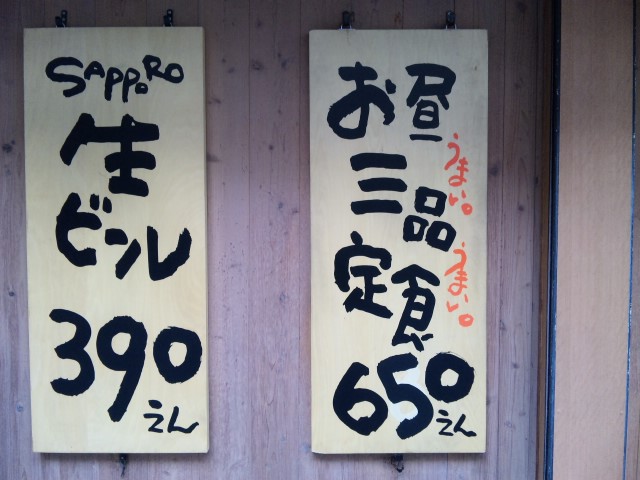 SAPPORO
生
ビール
390
えん
お昼
三品
定食
うまい。
うまい。
650
えん